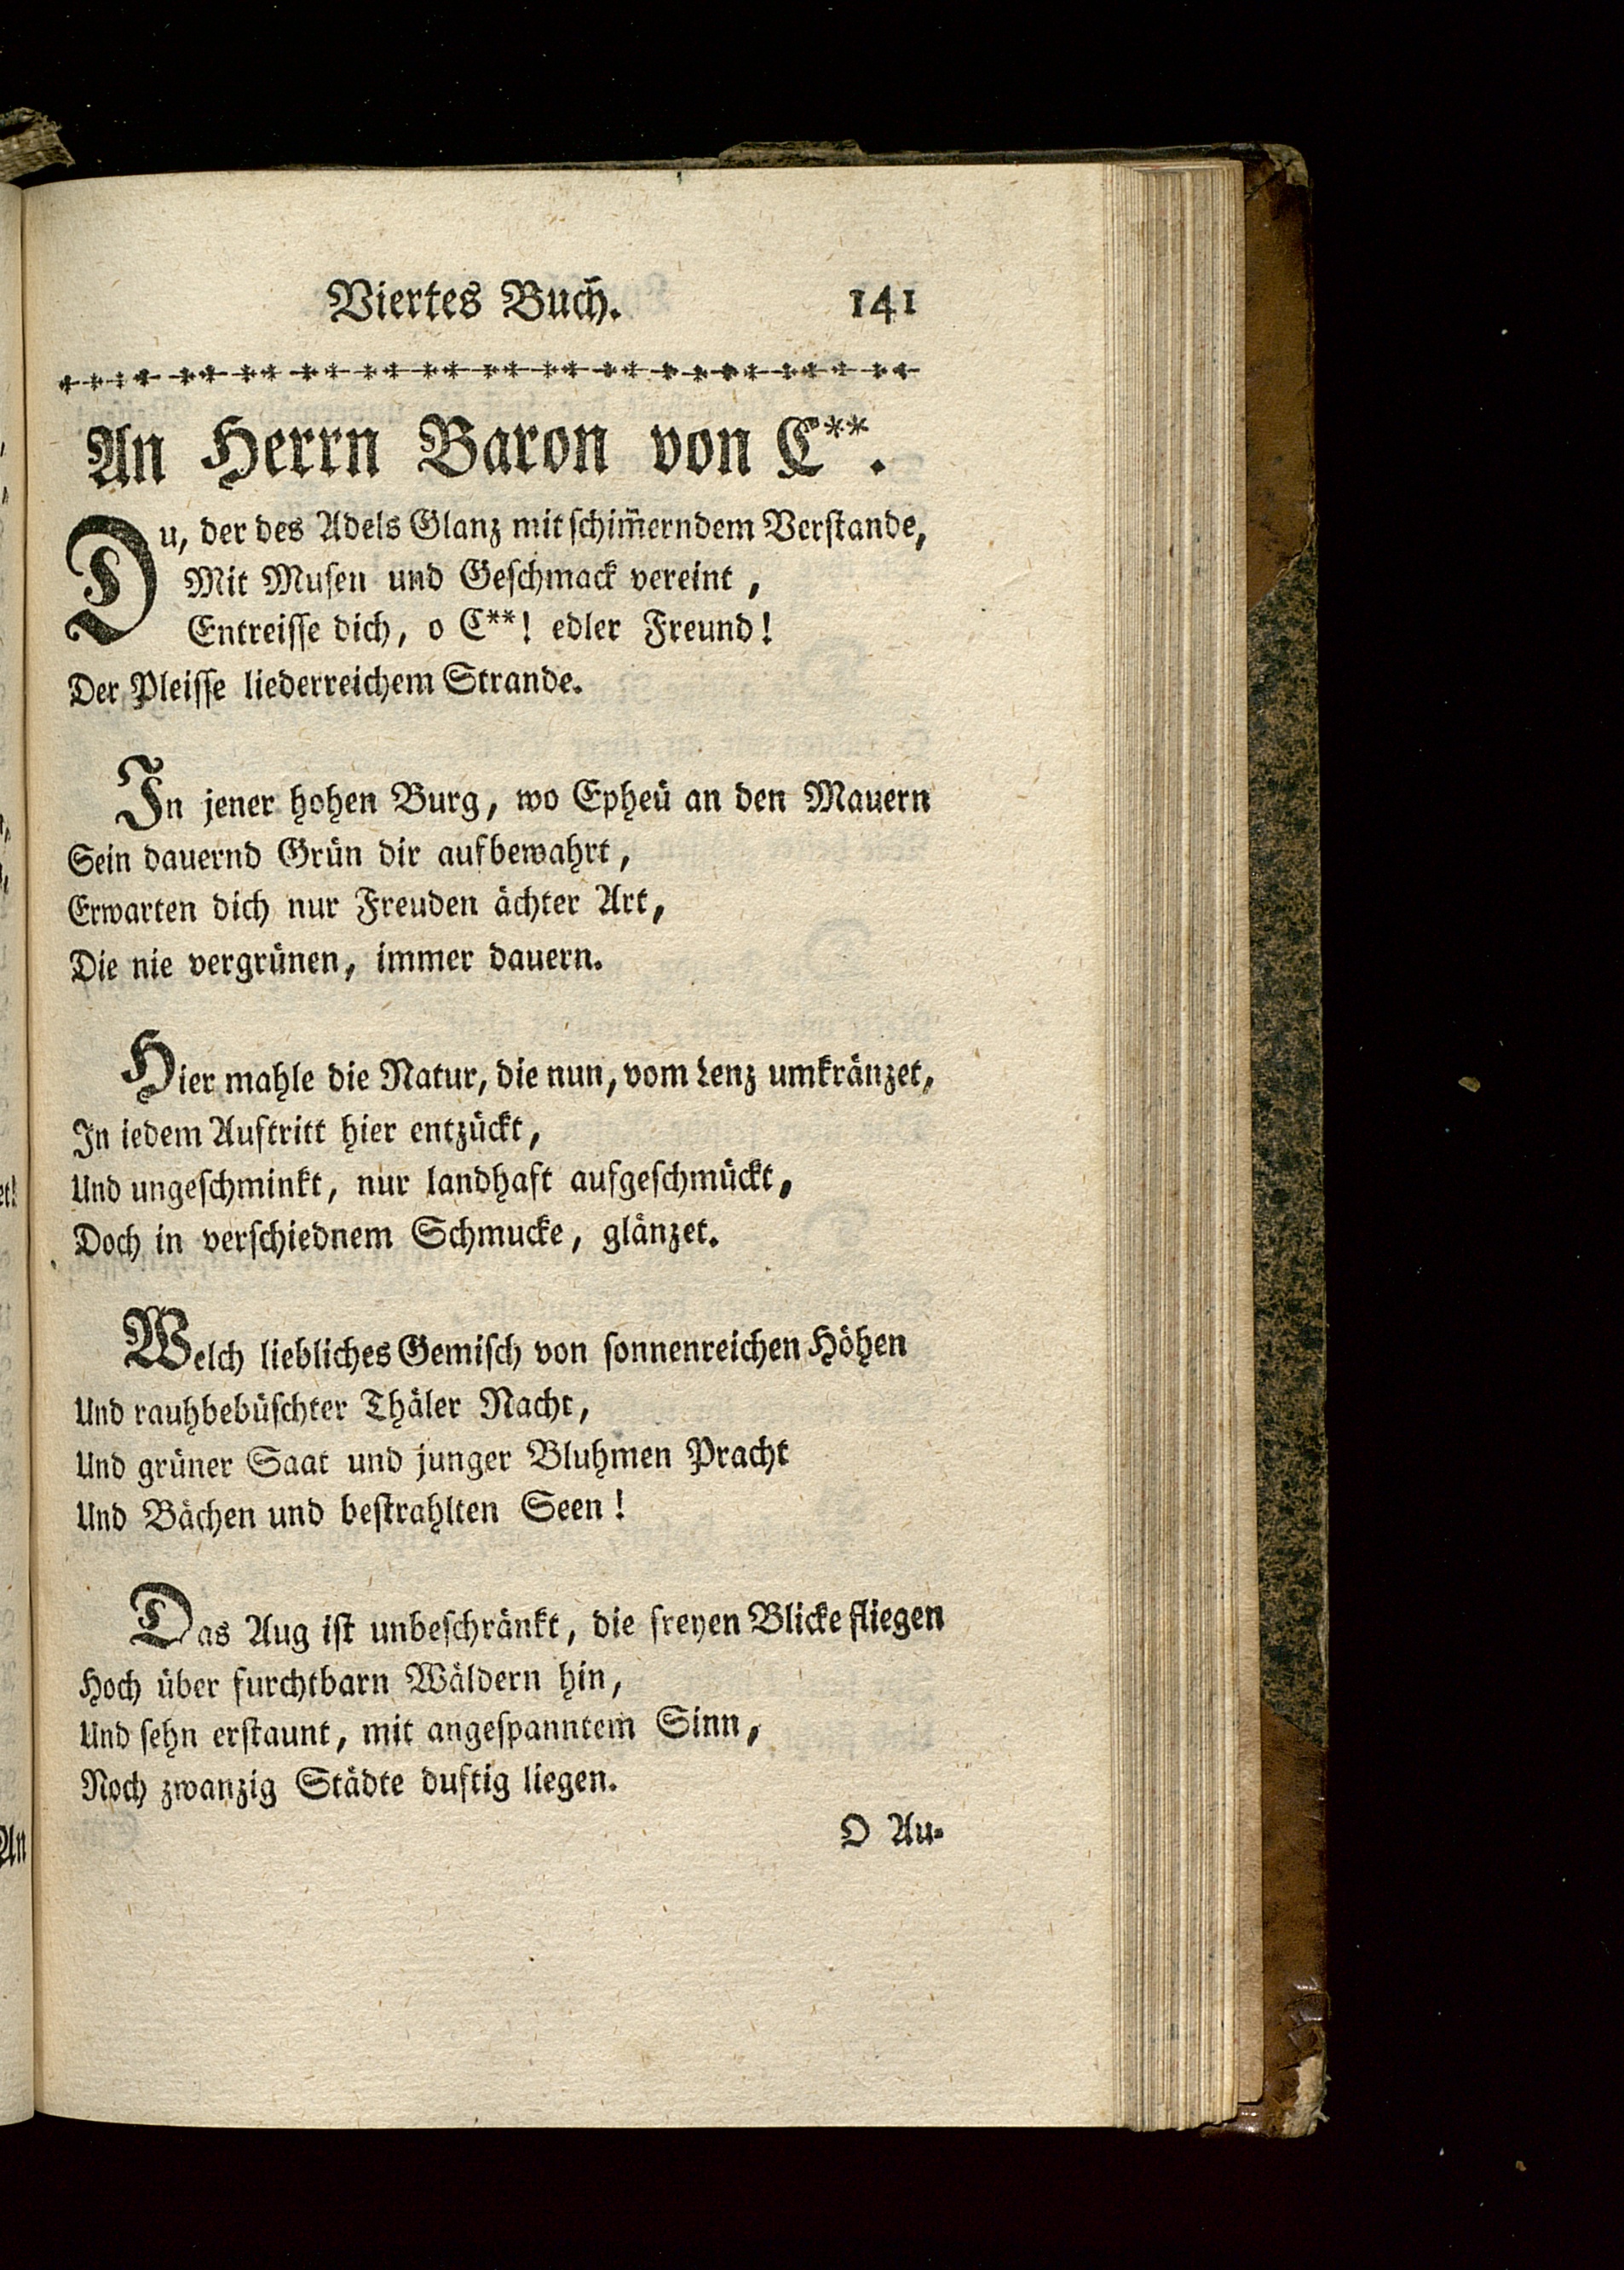 Viertes Buch. 141
An Herrn Baron von C**.
Du, der des Adels Glanz mit schim̃erndem Verstande,
Mit Musen und Geschmack vereint,
Entreisse dich, o C**! edler Freund!
Der Pleisse liederreichem Strande.
In jener hohen Burg, wo Epheü an den Mauern
Sein dauernd Grün dir aufbewahrt,
Erwarten dich nur Freuden ächter Art,
Die nie vergrünen, immer dauern.
Hier mahle die Natur, die nun, vom Lenz umkränzet,
In iedem Auftritt hier entzückt,
Und ungeschminkt, nur landhaft aufgeschmückt,
Doch in verschiednem Schmucke, glänzet.
Welch liebliches Gemisch von sonnenreichen Höhen
Und rauhbebüschter Thäler Nacht,
Und grüner Saat und junger Bluhmen Pracht
Und Bächen und bestrahlten Seen!
Das Aug ist unbeschränkt, die freyen Blicke fliegen
Hoch über furchtbarn Wäldern hin,
Und sehn erstaunt, mit angespanntem Sinn,
Noch zwanzig Städte duftig liegen.
O Au-